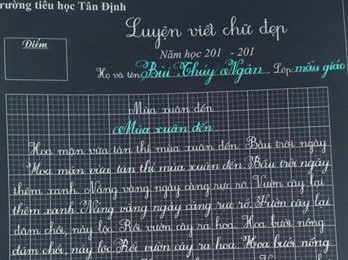 rường tiểu học Tân Định
Điểm
Luyện viết chữ đẹp
Năm học 201 - 201
Họ và tên Bùi Thúy Ngân Lớp: mẫu giáo
Mùa xuân đến
Mùa xuân đến
Hoa mận vừa tàn thì mùa xuân đến. Bầu trời ngày
Hoa mận vừa tàn thì mùa xuân đến. Bầu trời ngày
thêm xanh. Nắng vàng ngày càng rực rỡ. Vườn cây lại
thêm xanh. Nắng vàng ngày càng rực rỡ. Vườn cây lại
đâm chồi, nảy lộc. Rồi vườn cây ra hoa. Hoa bưởi nồng
đâm chồi, nảy lộc. Rồi vườn cây ra hoa. Hoa bưởi nồng